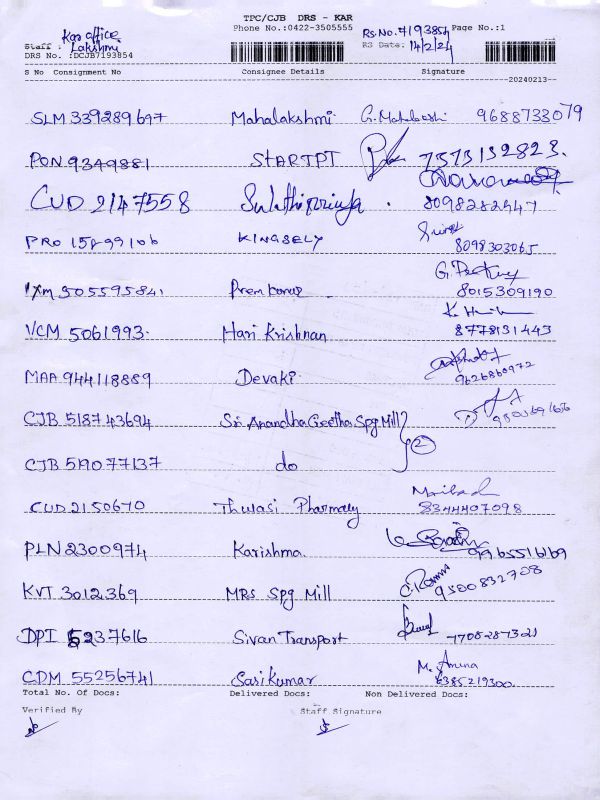 TPC/CJB DRS - KAR
Kar office Phone No.:0422-3505555 Rs.No.7193854 Page No.:1
Staff : Lakshmi RS Date: 14/2/24
DRS No. :DCJB7193854
S No Consignment No Consignee Details Signature
20240213
SLM 339289697 Mahalakshmi G. Mahalakshmi 9688733079
PON 9349881 STARTPT 7573132823.
CUD 2147558 8098282947
PRO KINGSELY 8098303065
305595841 Premkumar 8015309190
VCM 5061993 Hari Krishnan 8778131443
MAA 944118889 Devaki 9626860972
CJB 518743694 Sri Anandha Geetha Spg Mill 2
CJB 519077137 do
CUD 2150670 Thulasi Pharmacy 8344407098
PLN 2300974 Karishma
KVT 3012369 MRS Spg Mill 9500832708
DPI 5237616 Sivan Transport 7708287321
CDM 55256741 Sasikumar M. Aruna 6385219300
Total No. Of Docs: Delivered Docs: Non Delivered Docs:
Verified By Staff Signature